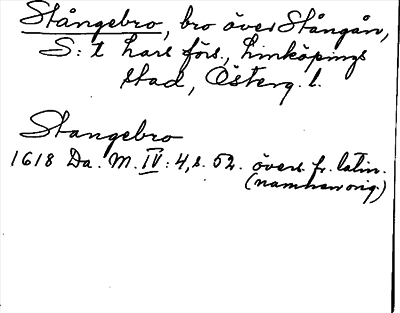 Stångebro, bro över Stångån,
S:t Lars förs., Linköpings
stad, Österg. l.
Stangebro
1618 Da. M. IV: 4, s. 52. övers. fr. latin.
(namnen orig.)